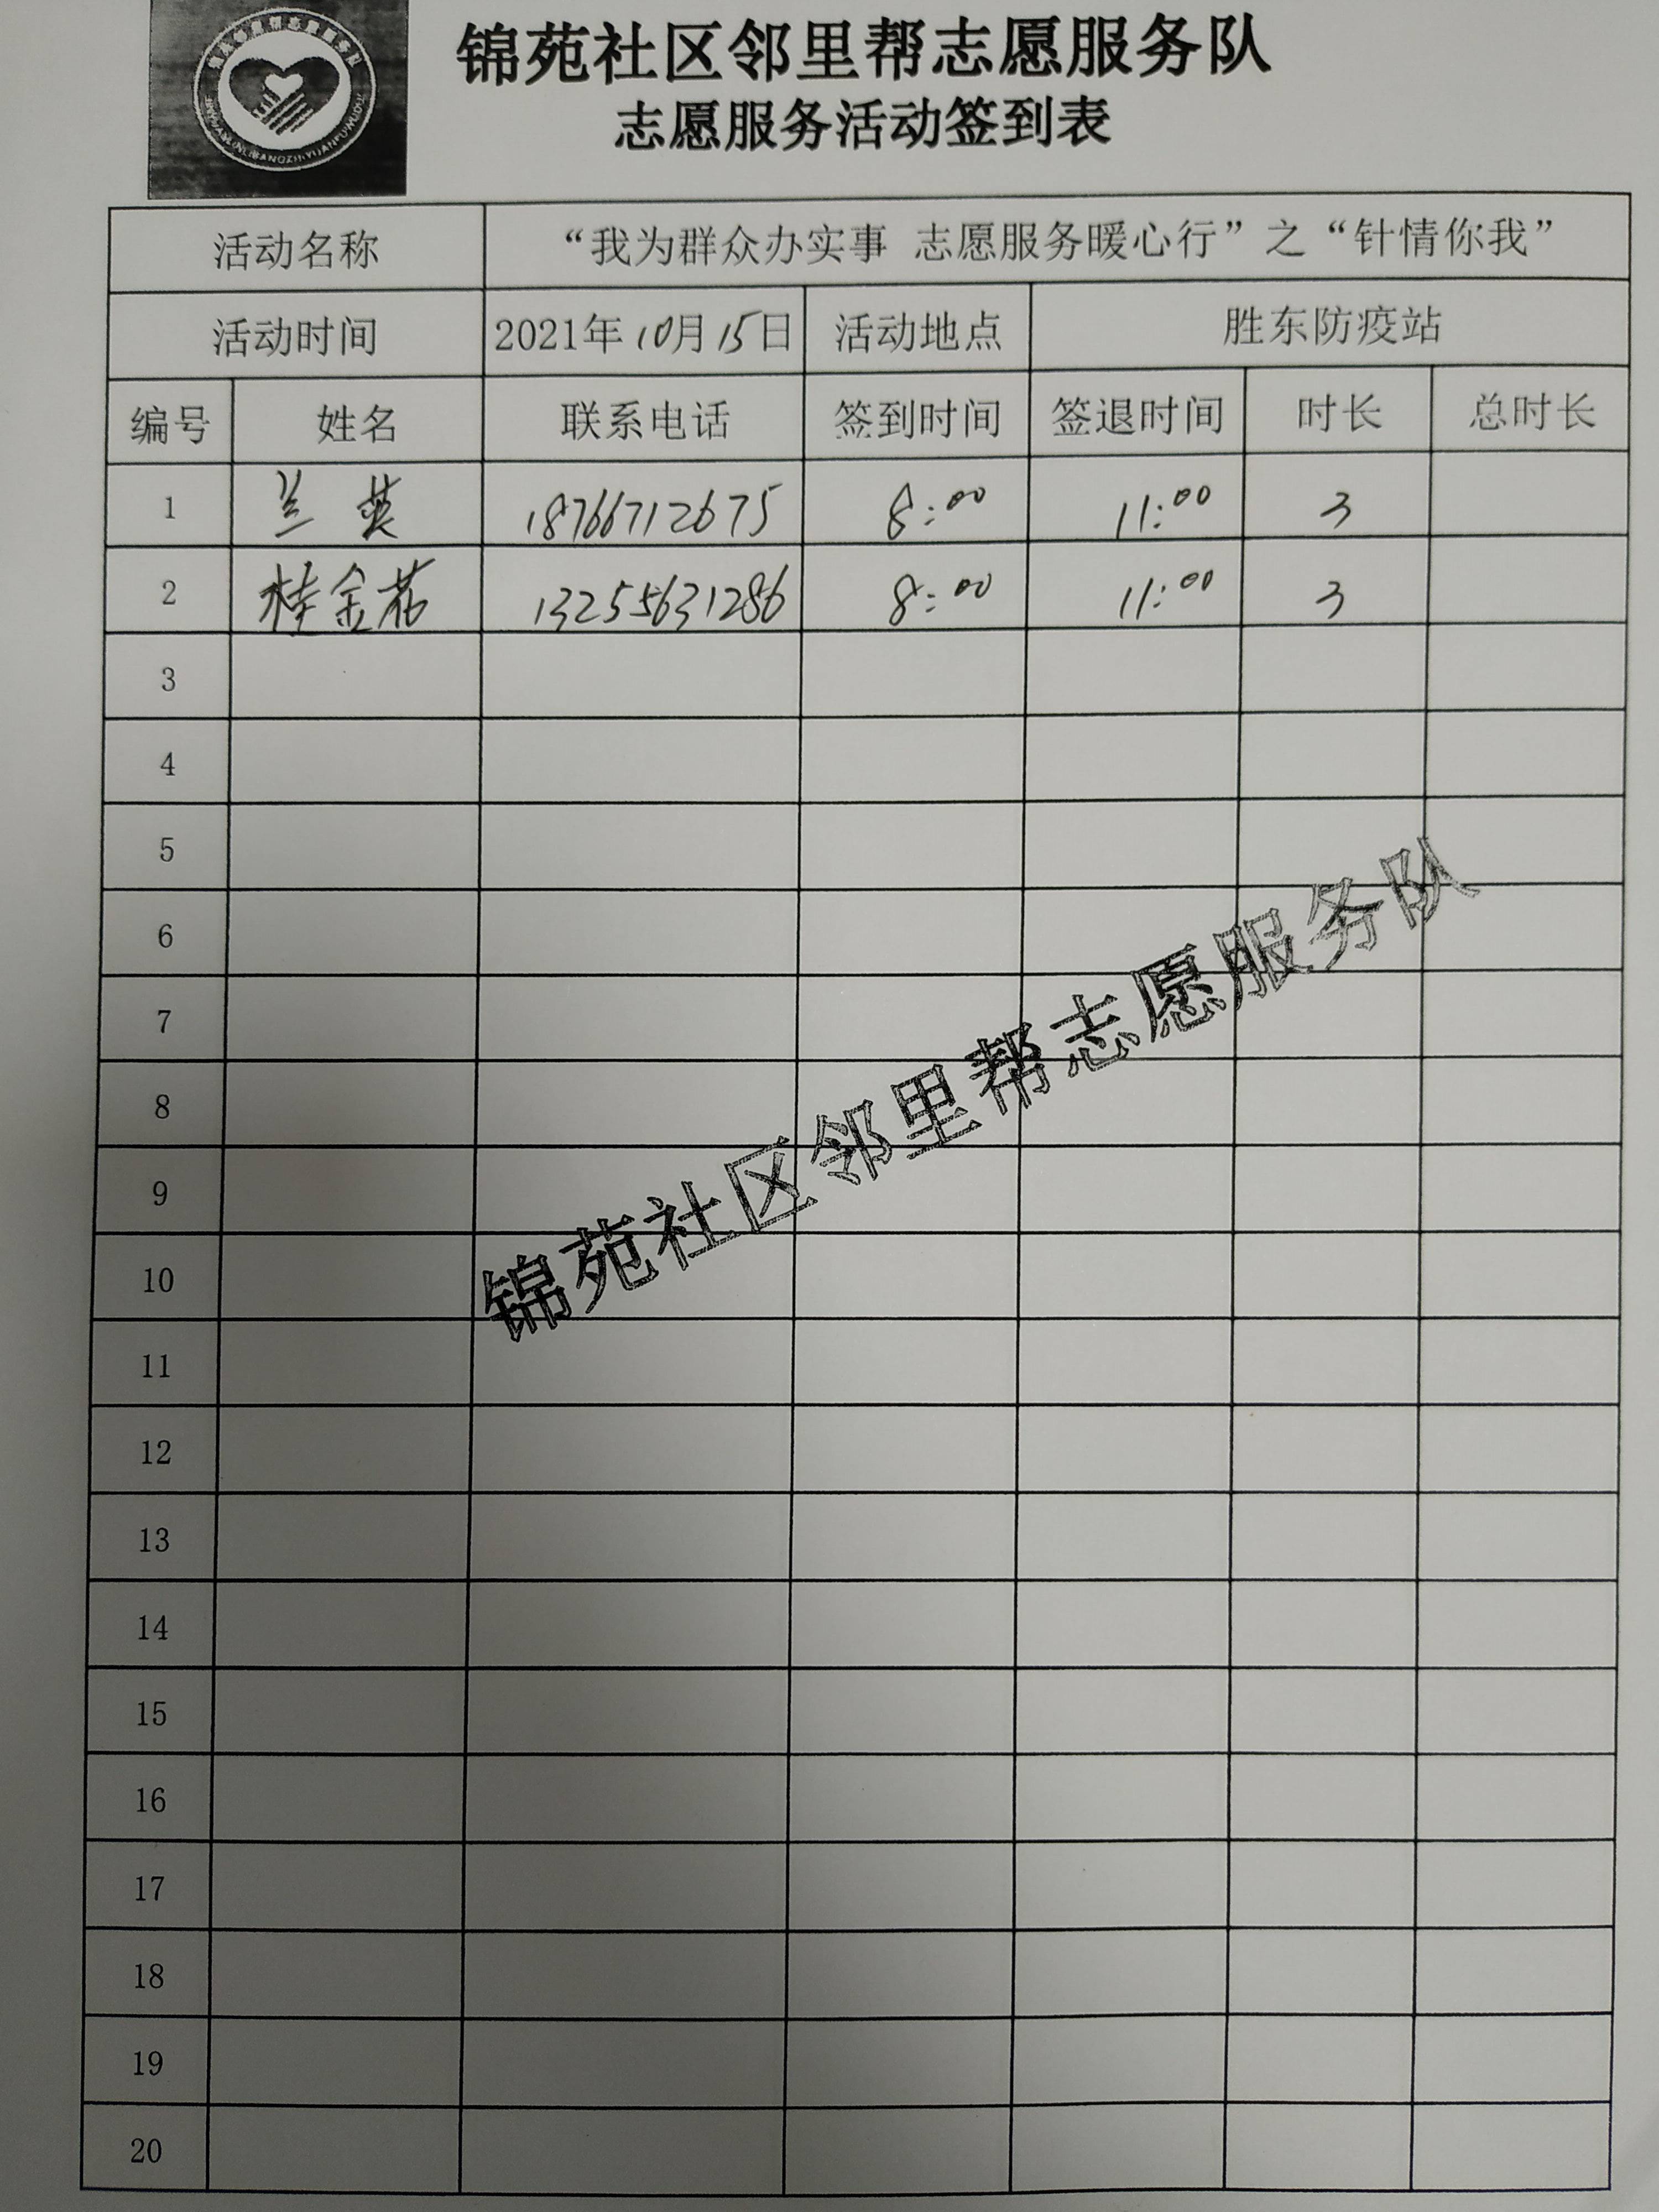 锦苑社区邻里帮志愿服务队
志愿服务活动签到表
活动名称 “我为群众办实事 志愿服务暖心行”之“针情你我”
活动时间 2021年10月15日 活动地点 胜东防疫站
编号 姓名 联系电话 签到时间 签退时间 时长 总时长
1 兰英 18766712675 8:00 11:00 3
2 桂金花 13255631286 8:00 11:00 3
3
4
5
6
7
8
9
10
11
12
13
14
15
16
17
18
19
20
锦苑社区邻里帮志愿服务队